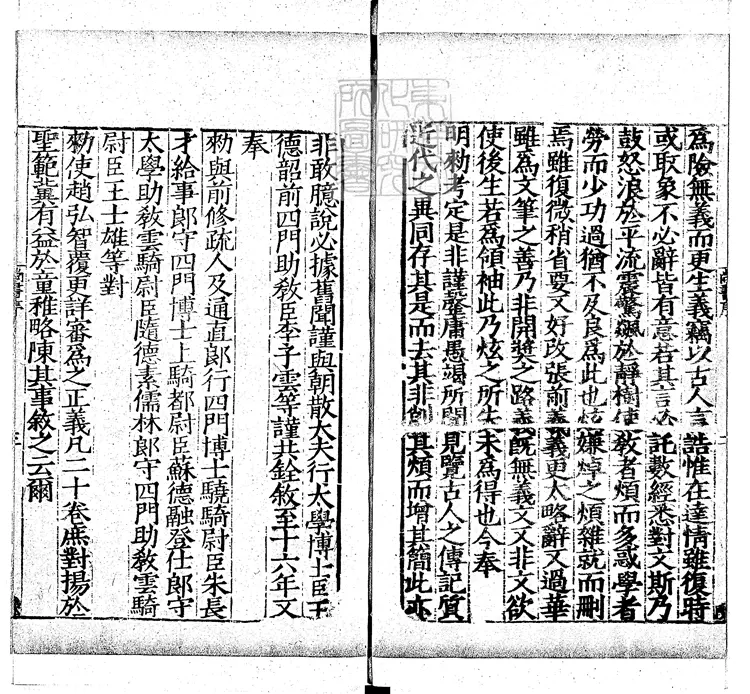 爲險無義而更生義竊以古人言誥惟在達情雖復時
或取象不必辭皆有意若其言必託數經悉對文斯乃
鼓怒浪於平流震驚飆於靜樹使敎者煩而多惑學者
勞而少功過猶不及良爲此也炫嫌焯之煩雜就而刪
焉雖復微稍省要又好改張前義義更太略辭又過華
雖爲文筆之善乃非開奬之路義旣無義文又非文欲
使後生若爲領袖此乃炫之所失未爲得也今奉
明勑考定是非謹罄庸愚竭所聞見覽古人之傳記質
近代之異同存其是而去其非削其煩而增其簡此亦
非敢臆說必據舊聞謹與朝散大夫行太學博士臣王
德韶前四門助敎臣李子雲等謹共銓敘至十六年又
奉
勑與前修疏人及通直郞行四門博士驍騎尉臣朱長
才給事郞守四門博士上騎都尉臣蘇德融登仕郞守
太學助敎雲騎尉臣隨德素儒林郞守四門助敎雲騎
尉臣王士雄等對
勑使趙弘智覆更詳審爲之正義凡二十卷庶對揚於
聖範冀有益於童稚略陳其事敘之云爾